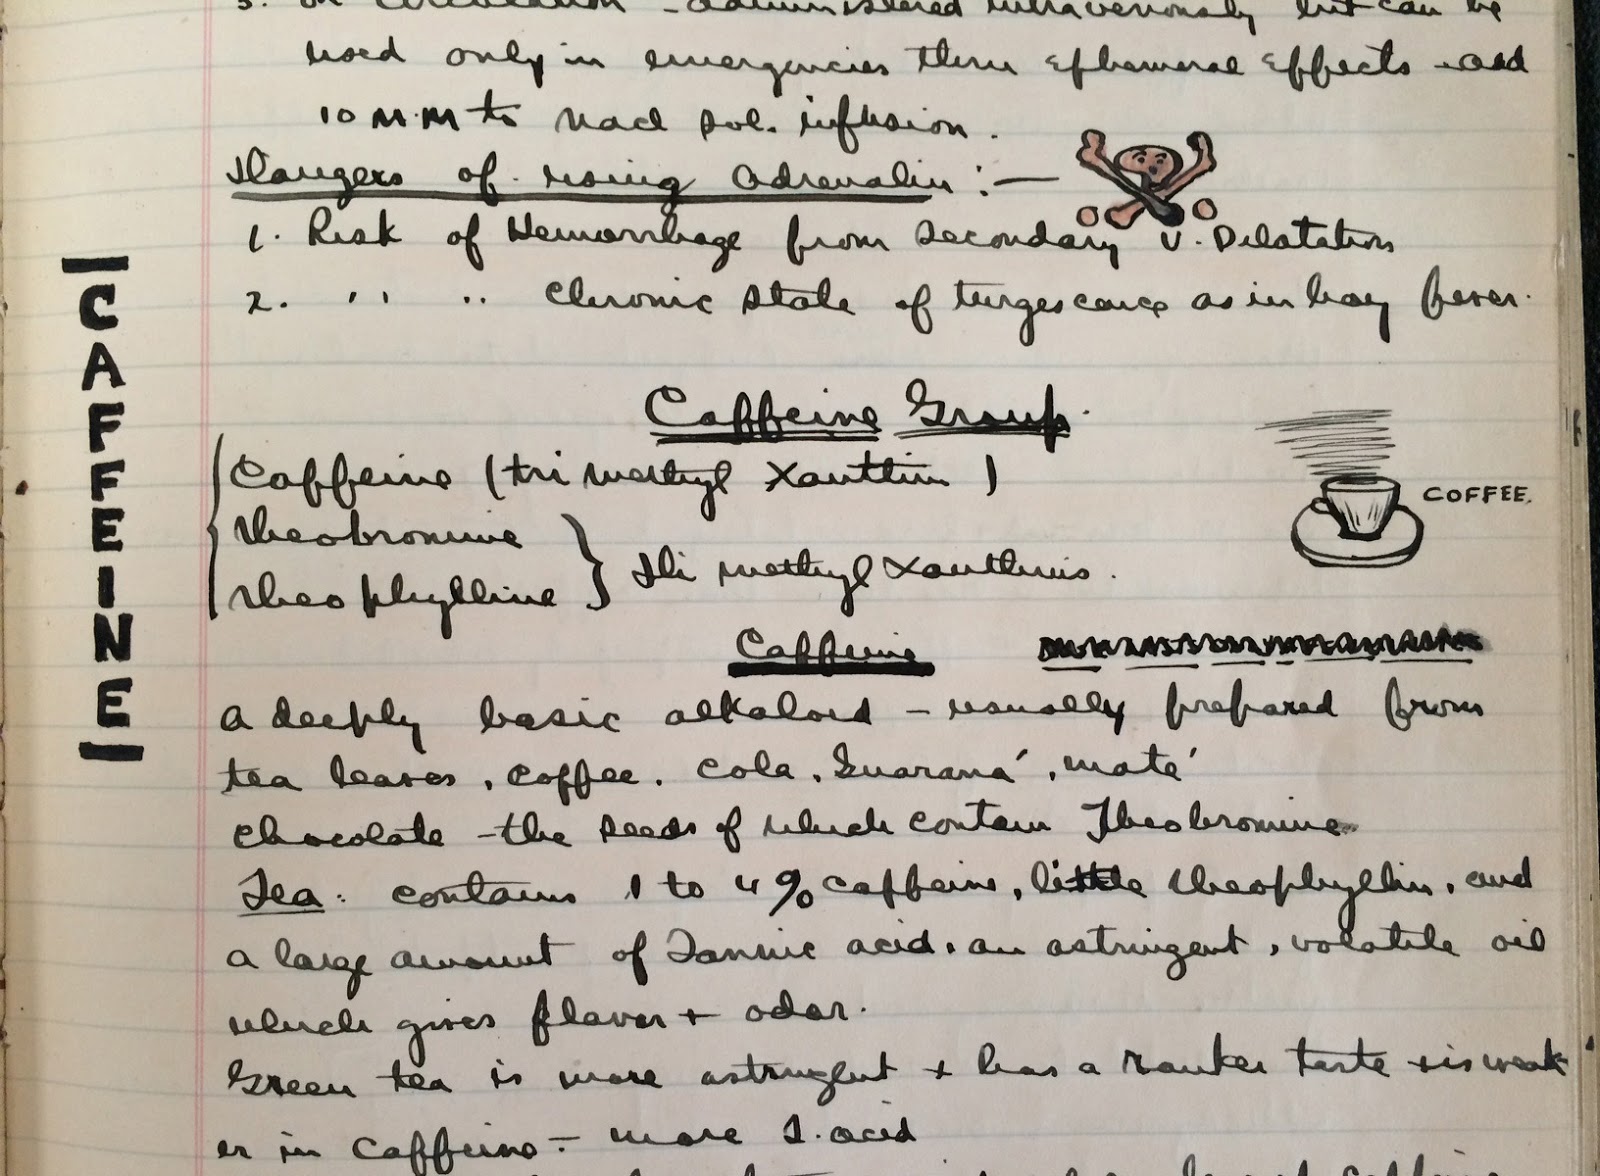 3. on circulation - administered intravenously but can be
used only in emergencies thru ephemeral effects - add
10 M.M to Nacl sol. infusion.
Dangers of using Adrenalin :—
1. Risk of Hemorrhage from Secondary V. Dilatation
2. " " Chronic state of turgescence as in hay fever.
CAFFEINE
Caffeine Group.
Caffeine (tri methyl Xanthin)
Theobromine
Theophylline } Di methyl Xanthins.
COFFEE.
Caffeine
A deeply basic alkaloid - usually prepared from
tea leaves, coffee, cola, Guaraná, maté
Chocolate - the seeds of which contain Theobromine
Tea: contains 1 to 4% caffeine, little theophyllin, and
a large amount of Tannic acid, an astringent, volatile oil
which gives flavor + odor.
Green tea is more astringent + has a ranker taste + is weak-
er in Caffeine - more T. acid